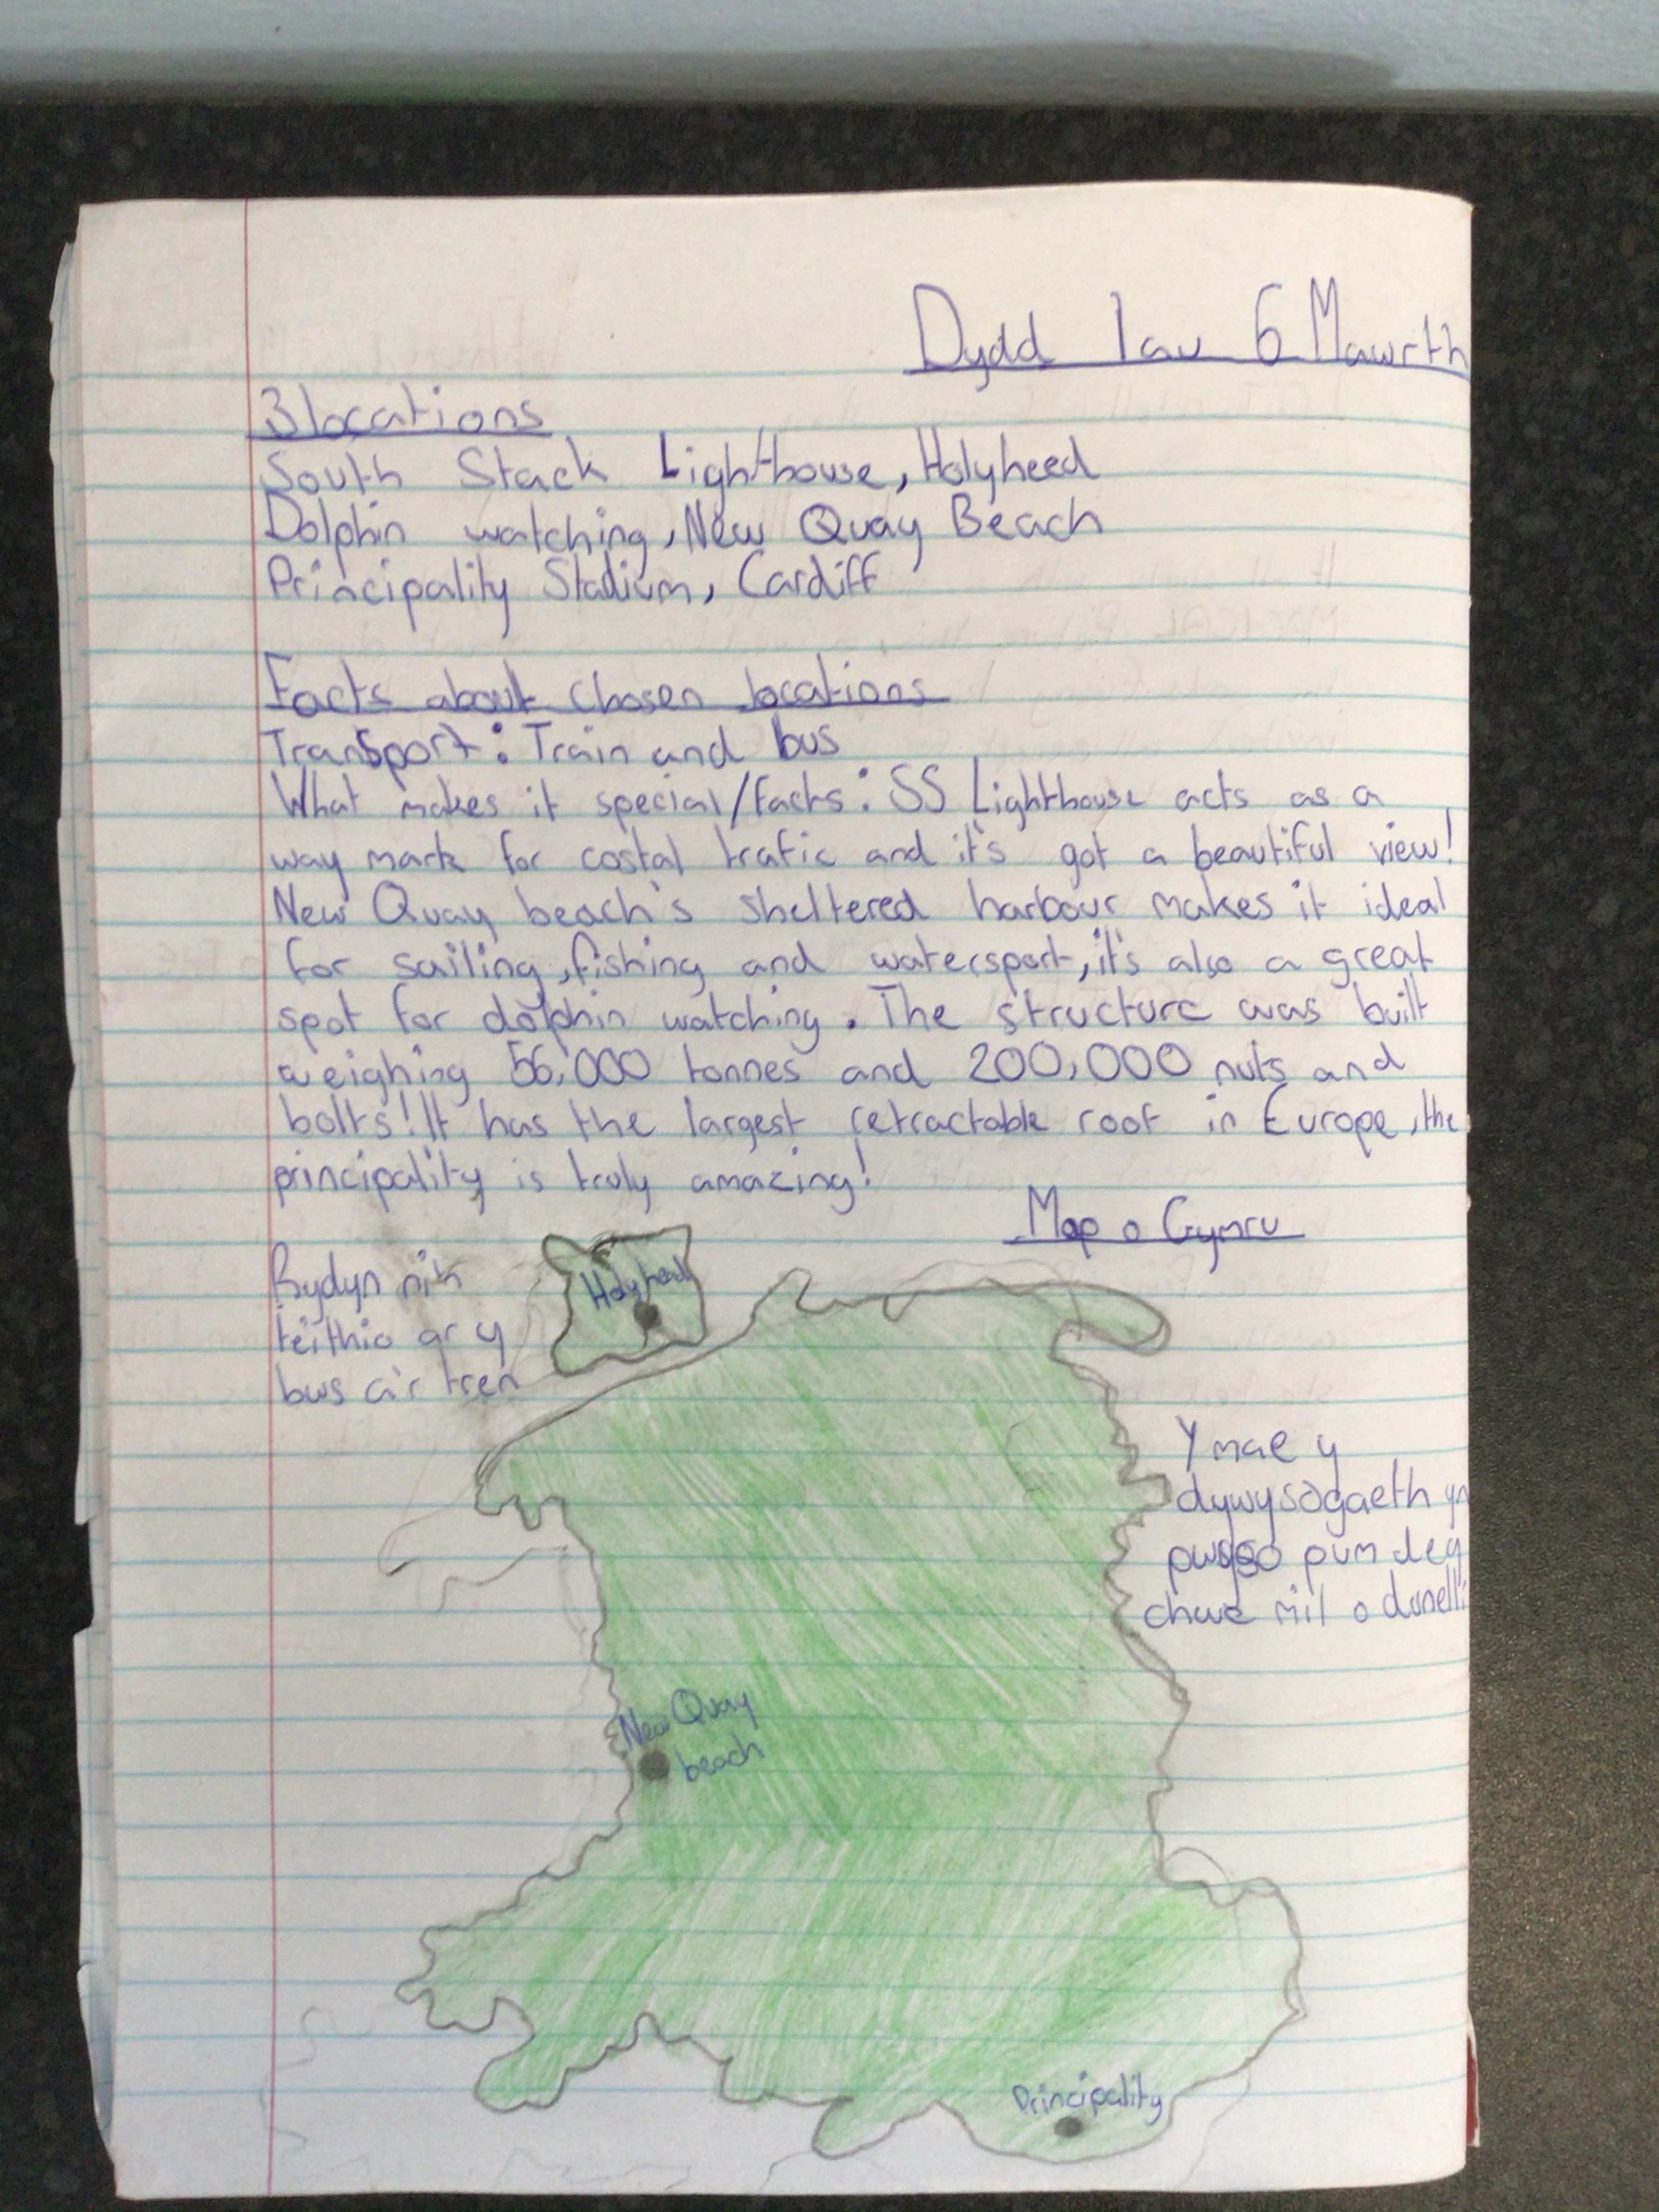 Dydd Iau 6 Mawrth
3 locations
South Stack Lighthouse, Holyheed
Dolphin watching, New Quay Beach
Principality Stadium, Cardiff
Facts about chosen locations
Transport: Train and bus
What makes it special/facts: SS Lighthouse acts as a
way mark for costal trafic and it's got a beautiful view!
New Quay beach's sheltered harbour makes it ideal
for sailing, fishing and watersport, it's also a great
spot for dolphin watching. The structure was built
weighing 56,000 tonnes and 200,000 nuts and
bolts! It has the largest retractable roof in Europe, the
principality is truly amazing!
Map o Cymru
Rydyn ni'n
teithio ar y
bws a'r tren
Holyhead
Y mae y
dywysogaeth yn
pwyso pum deg
chwe mil o dunelli
New Quay
beach
Principality